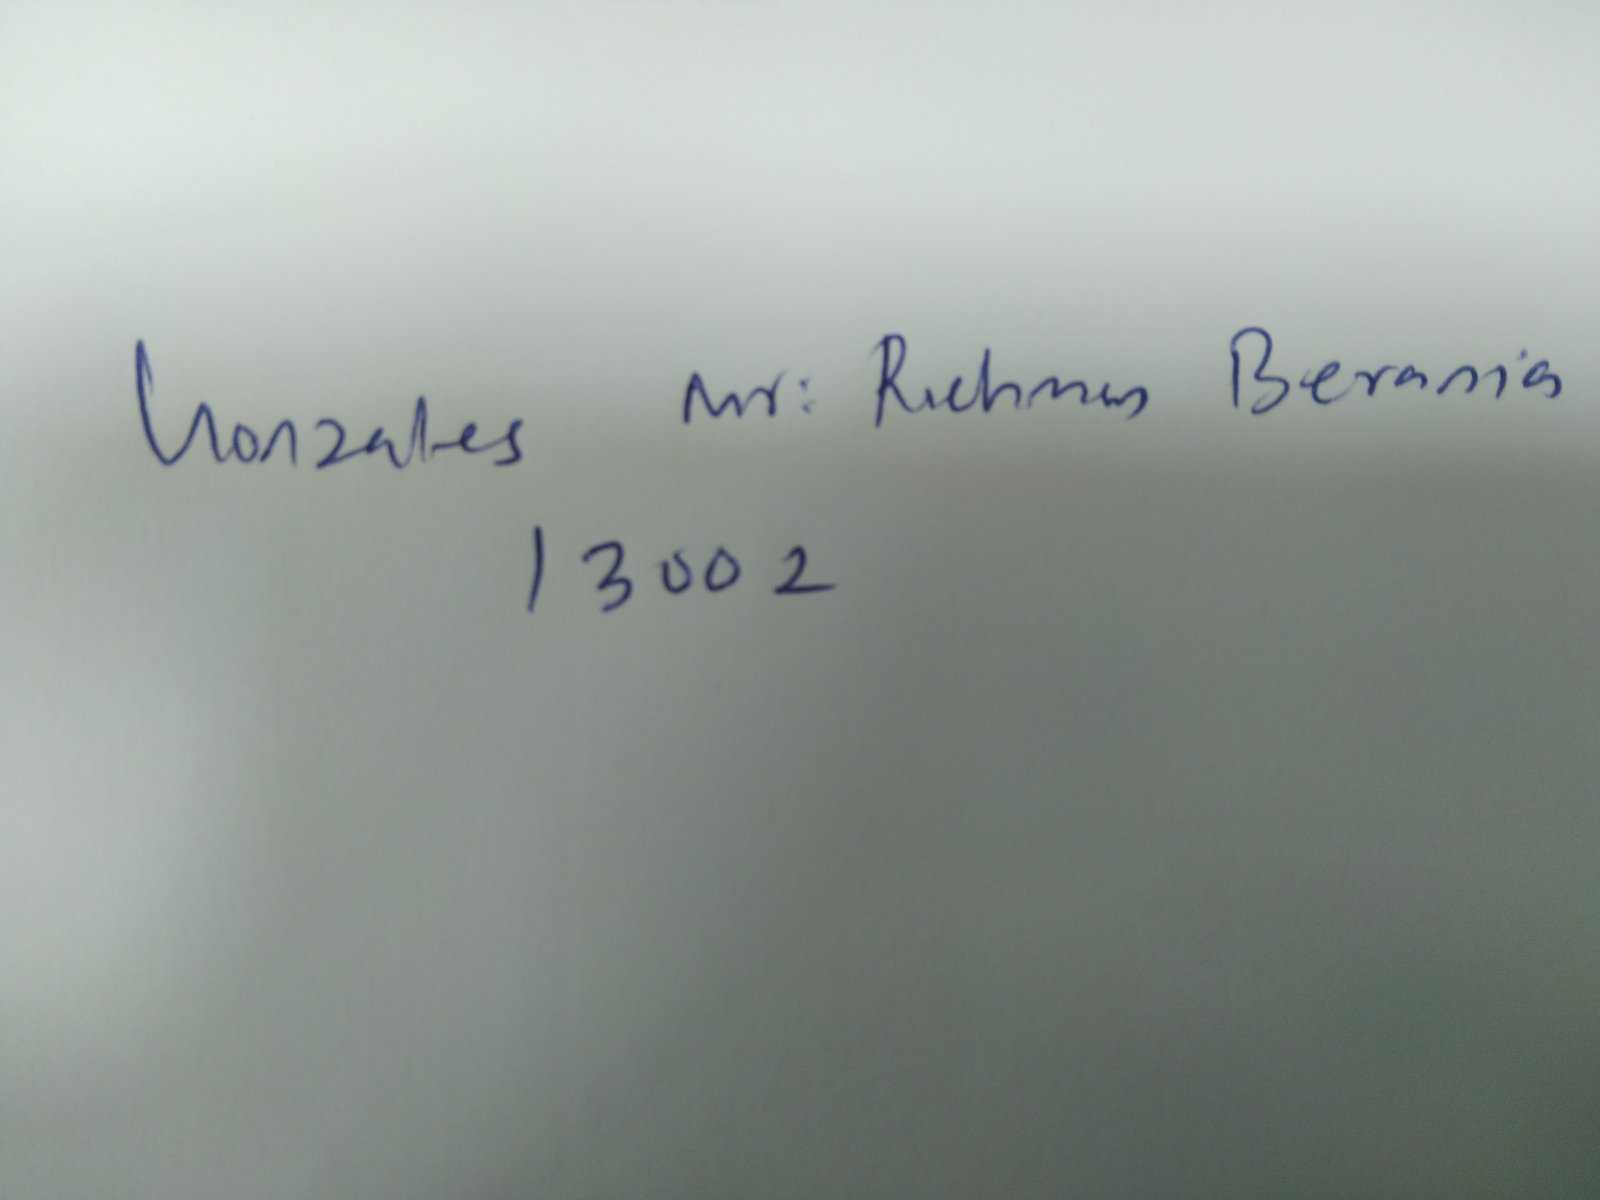 Gonzales Mr: Richmas Berania
13002